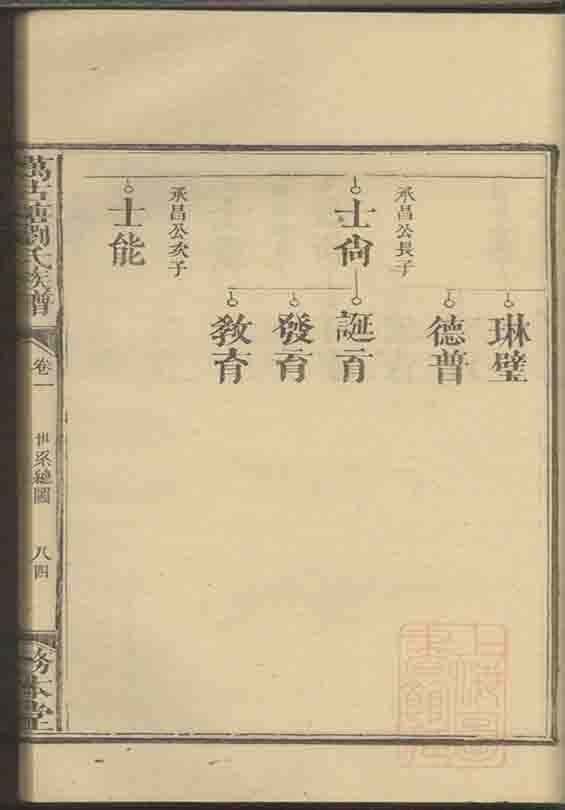 琳璧
德普
承昌公長子
士尙
誕育
發育
教育
承昌公次子
士能
劉氏族譜
卷一
世系總圖
八四
務本堂
上海圖書館藏